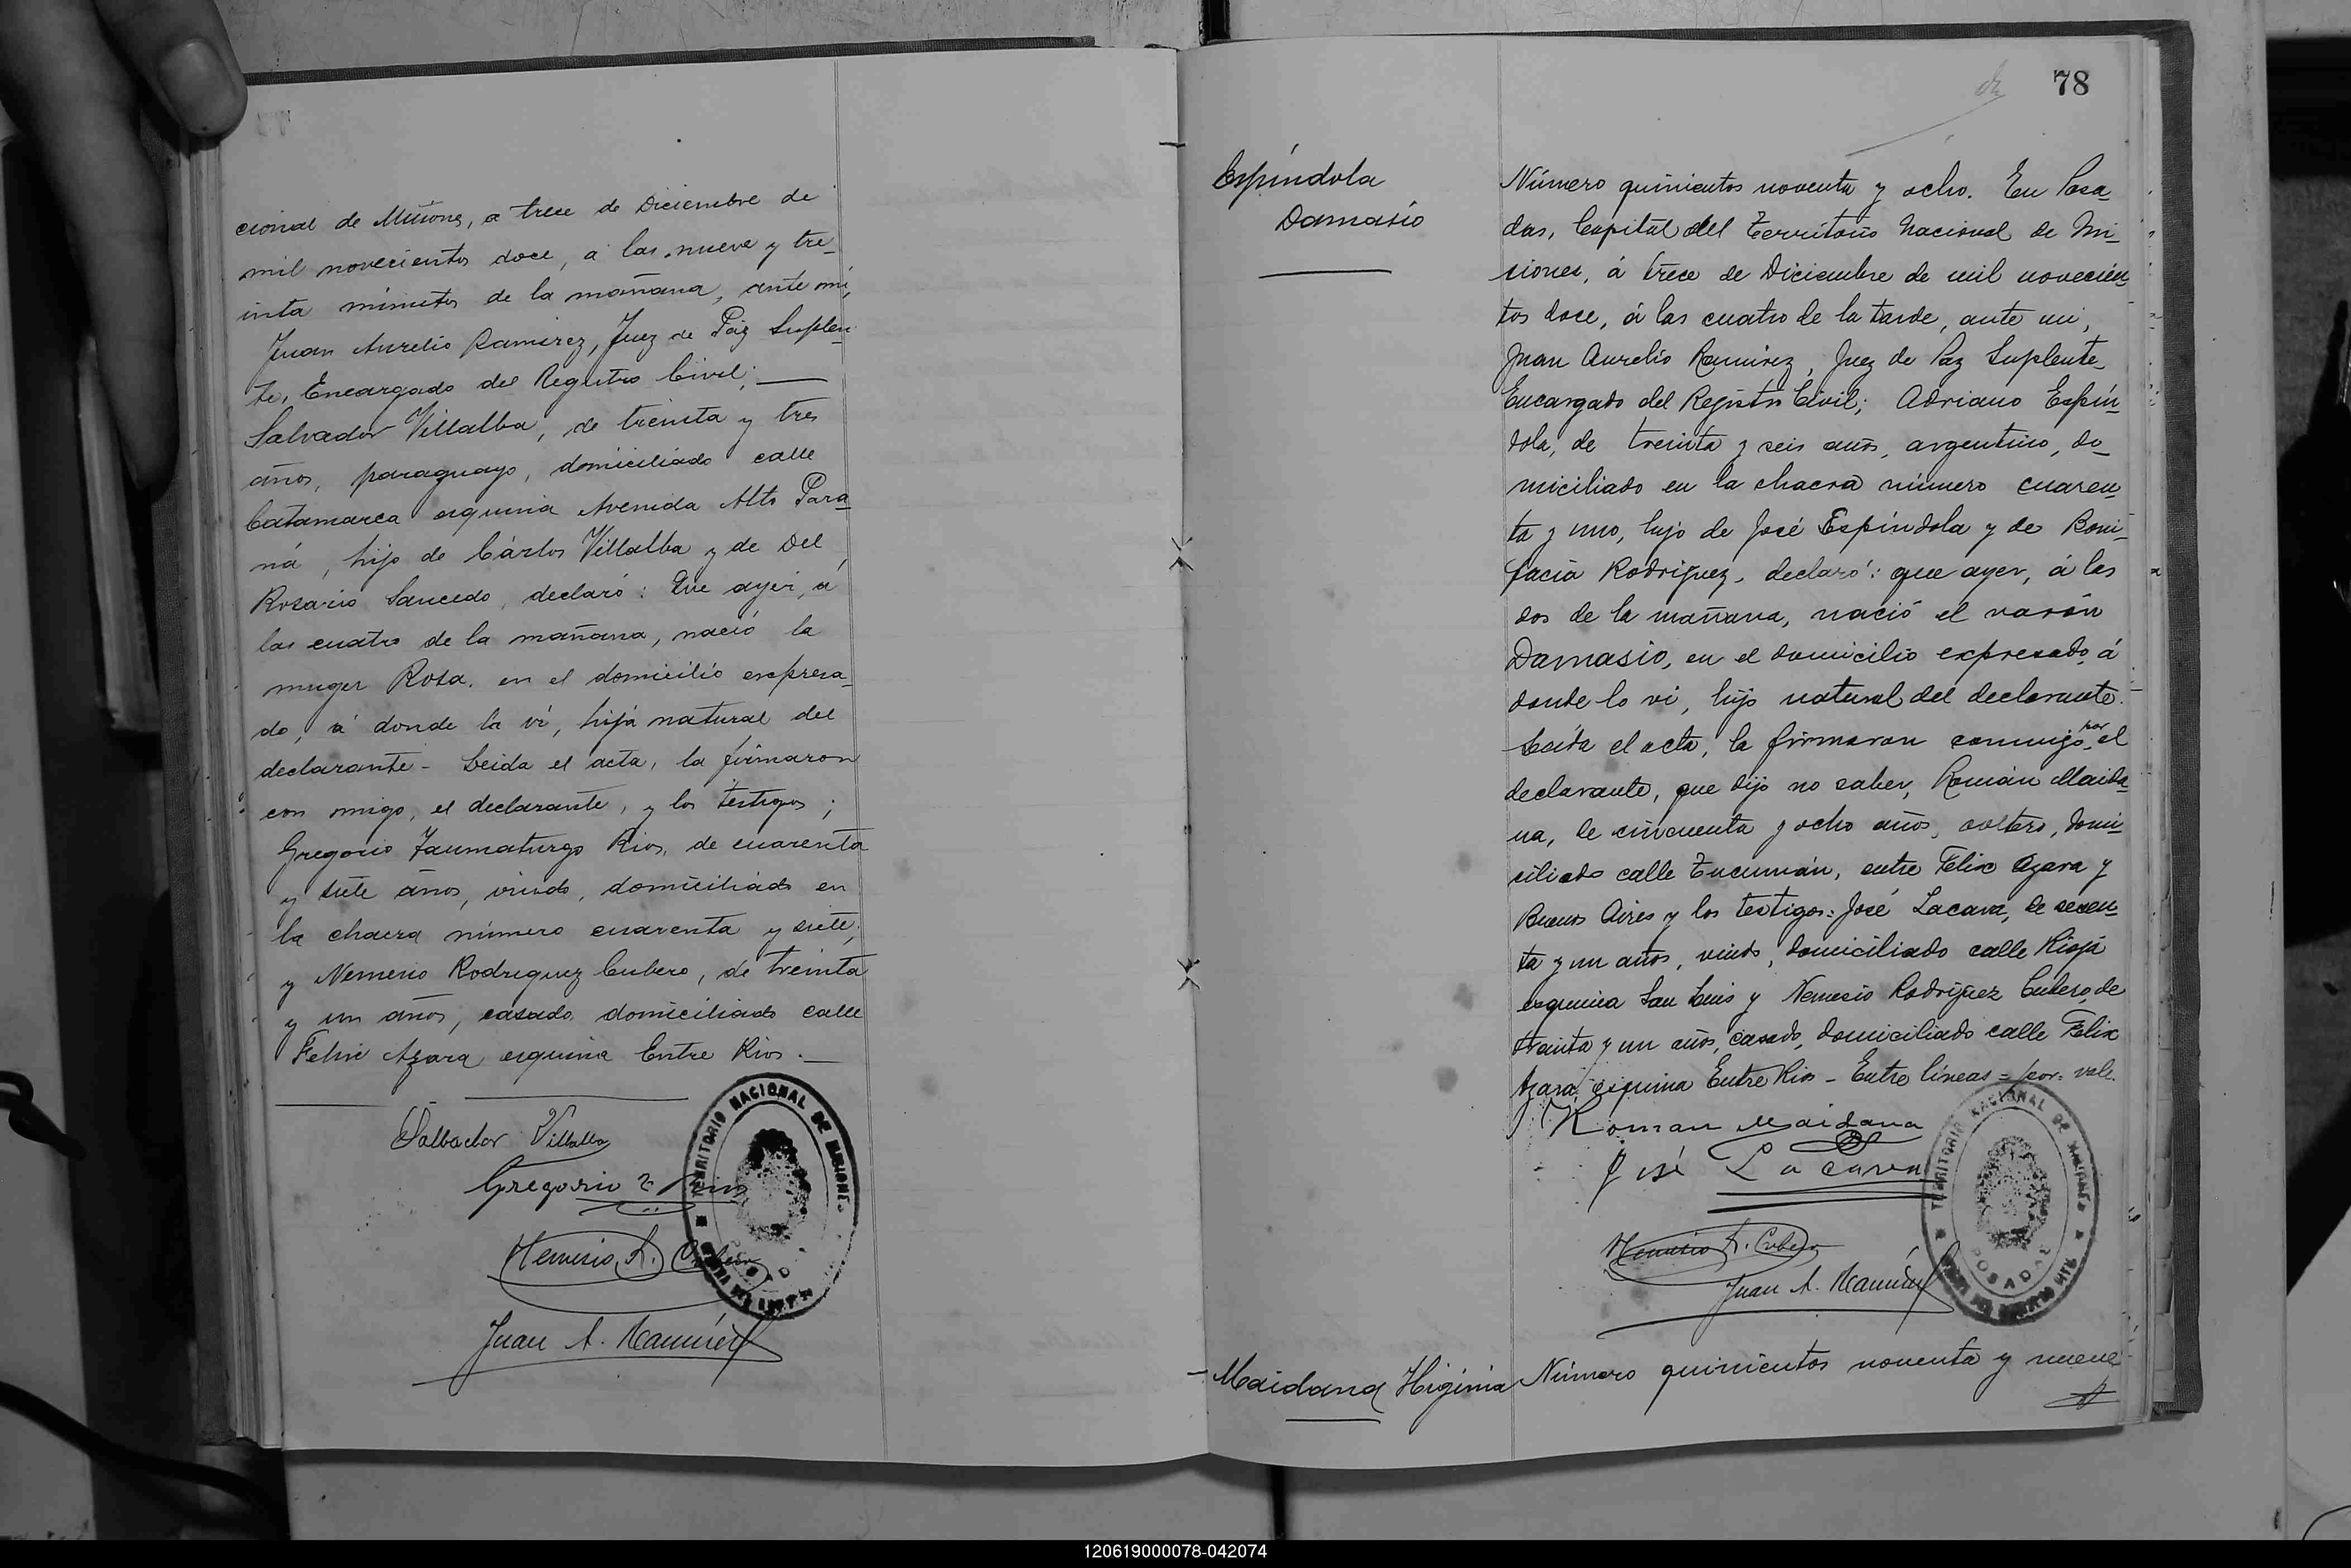 cional de Misiones, a trece de Diciembre de
mil novecientos doce, a las nueve y tre_
inta minutos de la mañana, ante mi,
Juan Aurelio Ramirez, Juez de Paz Suplen_
te, Encargado del Registro Civil; ——
Salvador Villalba, de treinta y tres
años, paraguayo, domiciliado calle
Catamarca esquina Avenida Alto Para_
ná, hijo de Cárlos Villalba y de Del
Rosario Saucedo, declaró: Que ayer, á
las cuatro de la mañana, nació la
muger Rosa, en el domicilio expresa_
do, á donde la ví, hija natural del
declarante - Leida el acta, la firmaron
con migo, el declarante, y los testigos;
Gregorio Taumaturgo Rios, de cuarenta
y siete años, viudo, domiciliado en
la chacra número cuarenta y siete,
y Nemesio Rodriguez Cubero, de treinta
y un años, casado, domiciliado calle
Felix Azara esquina Entre Rios. —
Salbador Villalba
Gregorio T. Rios
Nemesio R. Cubero
Juan A. Ramírez
TERRITORIO NACIONAL DE MISIONES
78
Espíndola
Damasio
Número quinientos noventa y ocho. En Posa_
das, Capital del Territorio Nacional de Mi_
siones, á trece de Diciembre de mil novecien_
tos doce, á las cuatro de la tarde, ante mi,
Juan Aurelio Ramirez, Juez de Paz Suplente_
Encargado del Registro Civil; Adriano Espín_
dola, de treinta y seis años, argentino, do_
miciliado en la chacra número cuaren_
ta y uno, hijo de José Espíndola y de Boni_
facia Rodriguez, declaró: que ayer, á las
dos de la mañana, nació el varón
Damasio, en el domicilio expresado, á
donde lo vi, hijo natural del declarante.
Leida el acta, la firmaron conmigo, por el
declarante, que dijo no saber, Román Maida_
na, de cincuenta y ocho años, soltero, domi_
ciliado calle Tucumán, entre Felix Azara y
Buenos Aires y los testigos: José Lacava, de sesen_
ta y un años, viudo, domiciliado calle Rioja
esquina San Luis y Nemesio Rodríguez Cubero, de
treinta y un años, casado, domiciliado calle Felix
Azara esquina Entre Rios - Entre líneas = por = vale.
Roman Maidana
José La cava
Nemesio R. Cubero
Juan A. Ramírez
TERRITORIO NACIONAL DE MISIONES
POSADAS
Maidana Higinia Número quinientos noventa y nueve
120619000078-042074